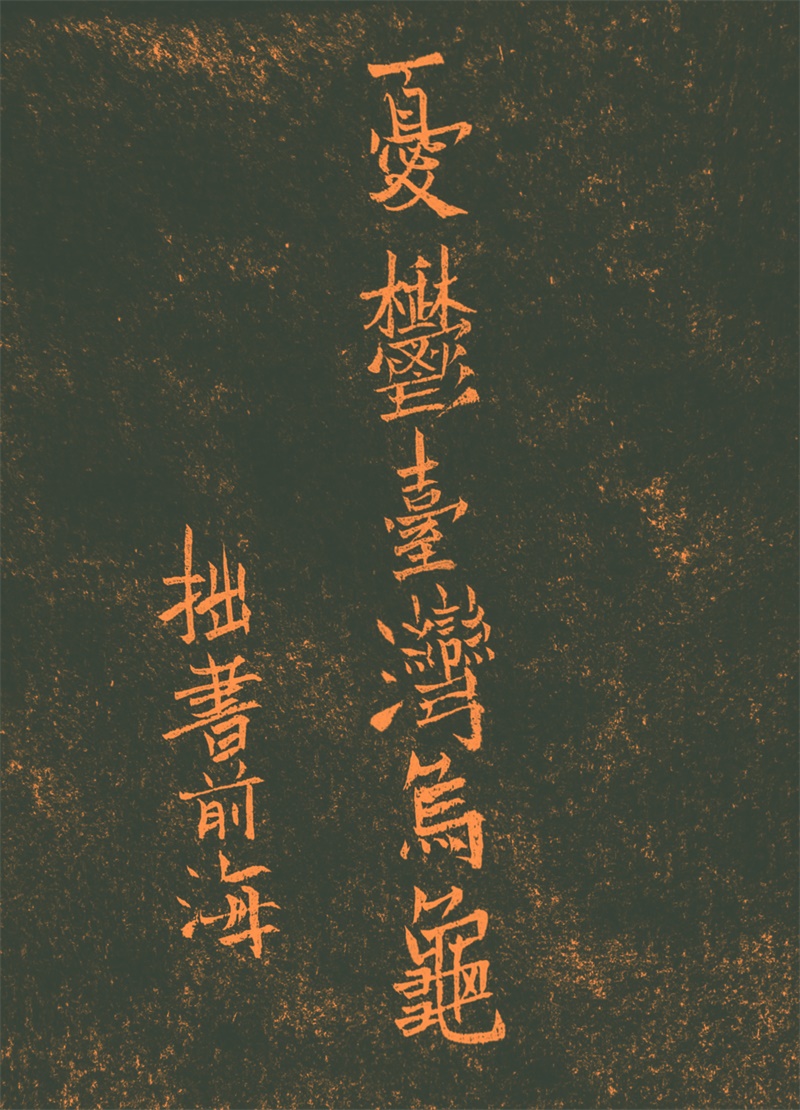 憂鬱臺灣烏龜
拙書前海